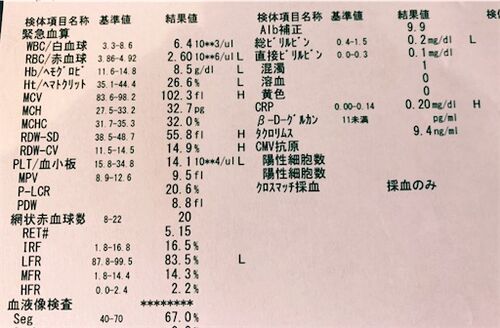 検体項目名称 基準値 結果値
緊急血算
WBC/白血球 3.3-8.6 6.4 10**3/ul
RBC/赤血球 3.86-4.92 2.60 10**6/ul L
Hb/ヘモグロビン 11.6-14.8 8.5 g/dl L
Ht/ヘマトクリット 35.1-44.4 26.6 % L
MCV 83.6-98.2 102.3 fl H
MCH 27.5-33.2 32.7 pg
MCHC 31.7-35.3 32.0 %
RDW-SD 38.5-48.7 55.8 fl H
RDW-CV 11.5-14.5 14.9 % H
PLT/血小板 15.8-34.8 14.1 10**4/ul L
MPV 8.9-12.6 9.5 fl
P-LCR 20.6 %
PDW 8.8 fl
網状赤血球数 8-22 20
RET# 5.15
IRF 1.8-16.8 16.5 %
LFR 87.8-99.5 83.5 % L
MFR 1.8-14.4 14.3 %
HFR 0.0-2.4 2.2 %
血液像検査 ********
Seg 40-70 67.0 %
検体項目名称 基準値 結果値
Alb補正 9.9
総ビリルビン 0.4-1.5 0.2 mg/dl L
直接ビリルビン 0.0-0.3 0.1 mg/dl
混濁 1
溶血 0
黄色 0
CRP 0.00-0.14 0.20 mg/dl H
β-D-グルカン 11未満 pg/ml
タクロリムス 9.4 ng/ml
CMV抗原
陽性細胞数
陽性細胞数
クロスマッチ採血 採血のみ